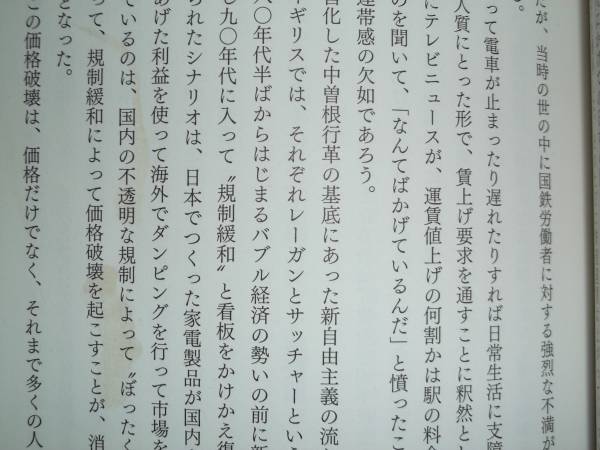 だが、当時の世の中に国鉄労働者に対する強烈な不満が
。
って電車が止まったり遅れたりすれば日常生活に支障
人質にとった形で、賃上げ要求を通すことに釈然と
にテレビニュースが、運賃値上げの何割かは駅の料金
のを聞いて、「なんてばかげているんだ」と憤ったこ
連帯感の欠如であろう。
営化した中曽根行革の基底にあった新自由主義の流
ギリスでは、それぞれレーガンとサッチャーとい
八〇年代半ばからはじまるバブル経済の勢いの前に新
し九〇年代に入って〝規制緩和〟と看板をかけかえ復
られたシナリオは、日本でつくった家電製品が国内
あげた利益を使って海外でダンピングを行って市場を
ているのは、国内の不透明な規制によって〝ぼったく
って、規制緩和によって価格破壊を起こすことが、消
となった。
この価格破壊は、価格だけでなく、それまで多くの人